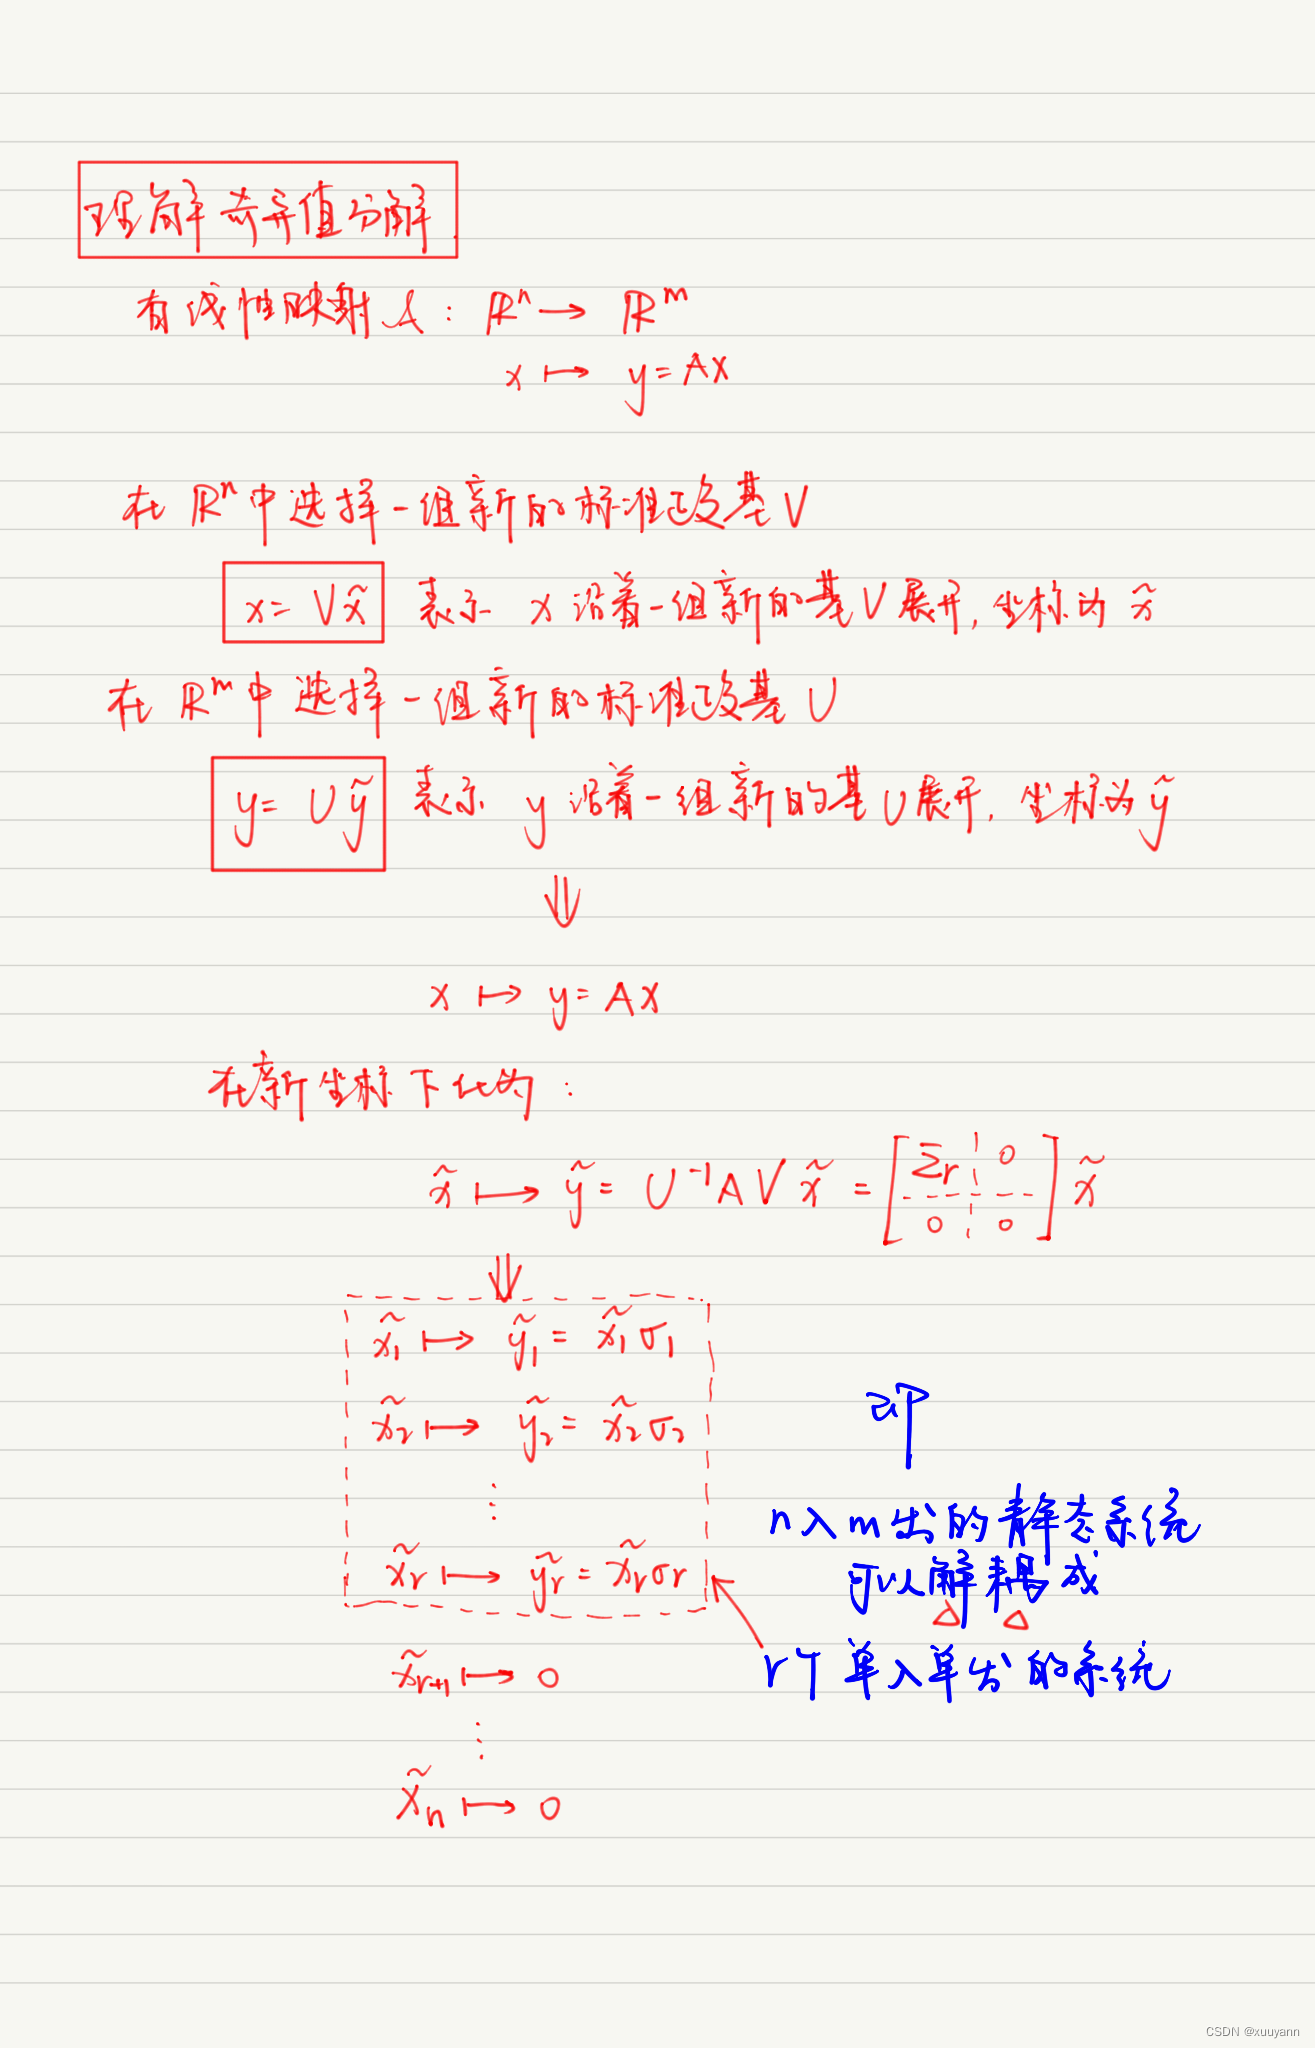 理解奇异值分解
有线性映射 𝒜: ℝⁿ → ℝᵐ
x ↦ y = Ax
在 ℝⁿ中选择一组新的标准正交基 V
x = Vx̃ 表示 x 沿着一组新的基 V 展开, 坐标为 x̃
在 ℝᵐ中选择一组新的标准正交基 U
y = Uỹ 表示 y 沿着一组新的基 U 展开, 坐标为 ỹ
⇓
x ↦ y = Ax
在新坐标下化为:
x̃ ↦ ỹ = U⁻¹AVx̃ = [Σr 0; 0 0] x̃
⇓
x̃₁ ↦ ỹ₁ = x̃₁σ₁
x̃₂ ↦ ỹ₂ = x̃₂σ₂
⋮
x̃r ↦ ỹr = x̃rσr
x̃r+1 ↦ 0
⋮
x̃n ↦ 0
即
n入m出的静态系统
可以解耦成
r个单入单出的系统
CSDN @xuuyann